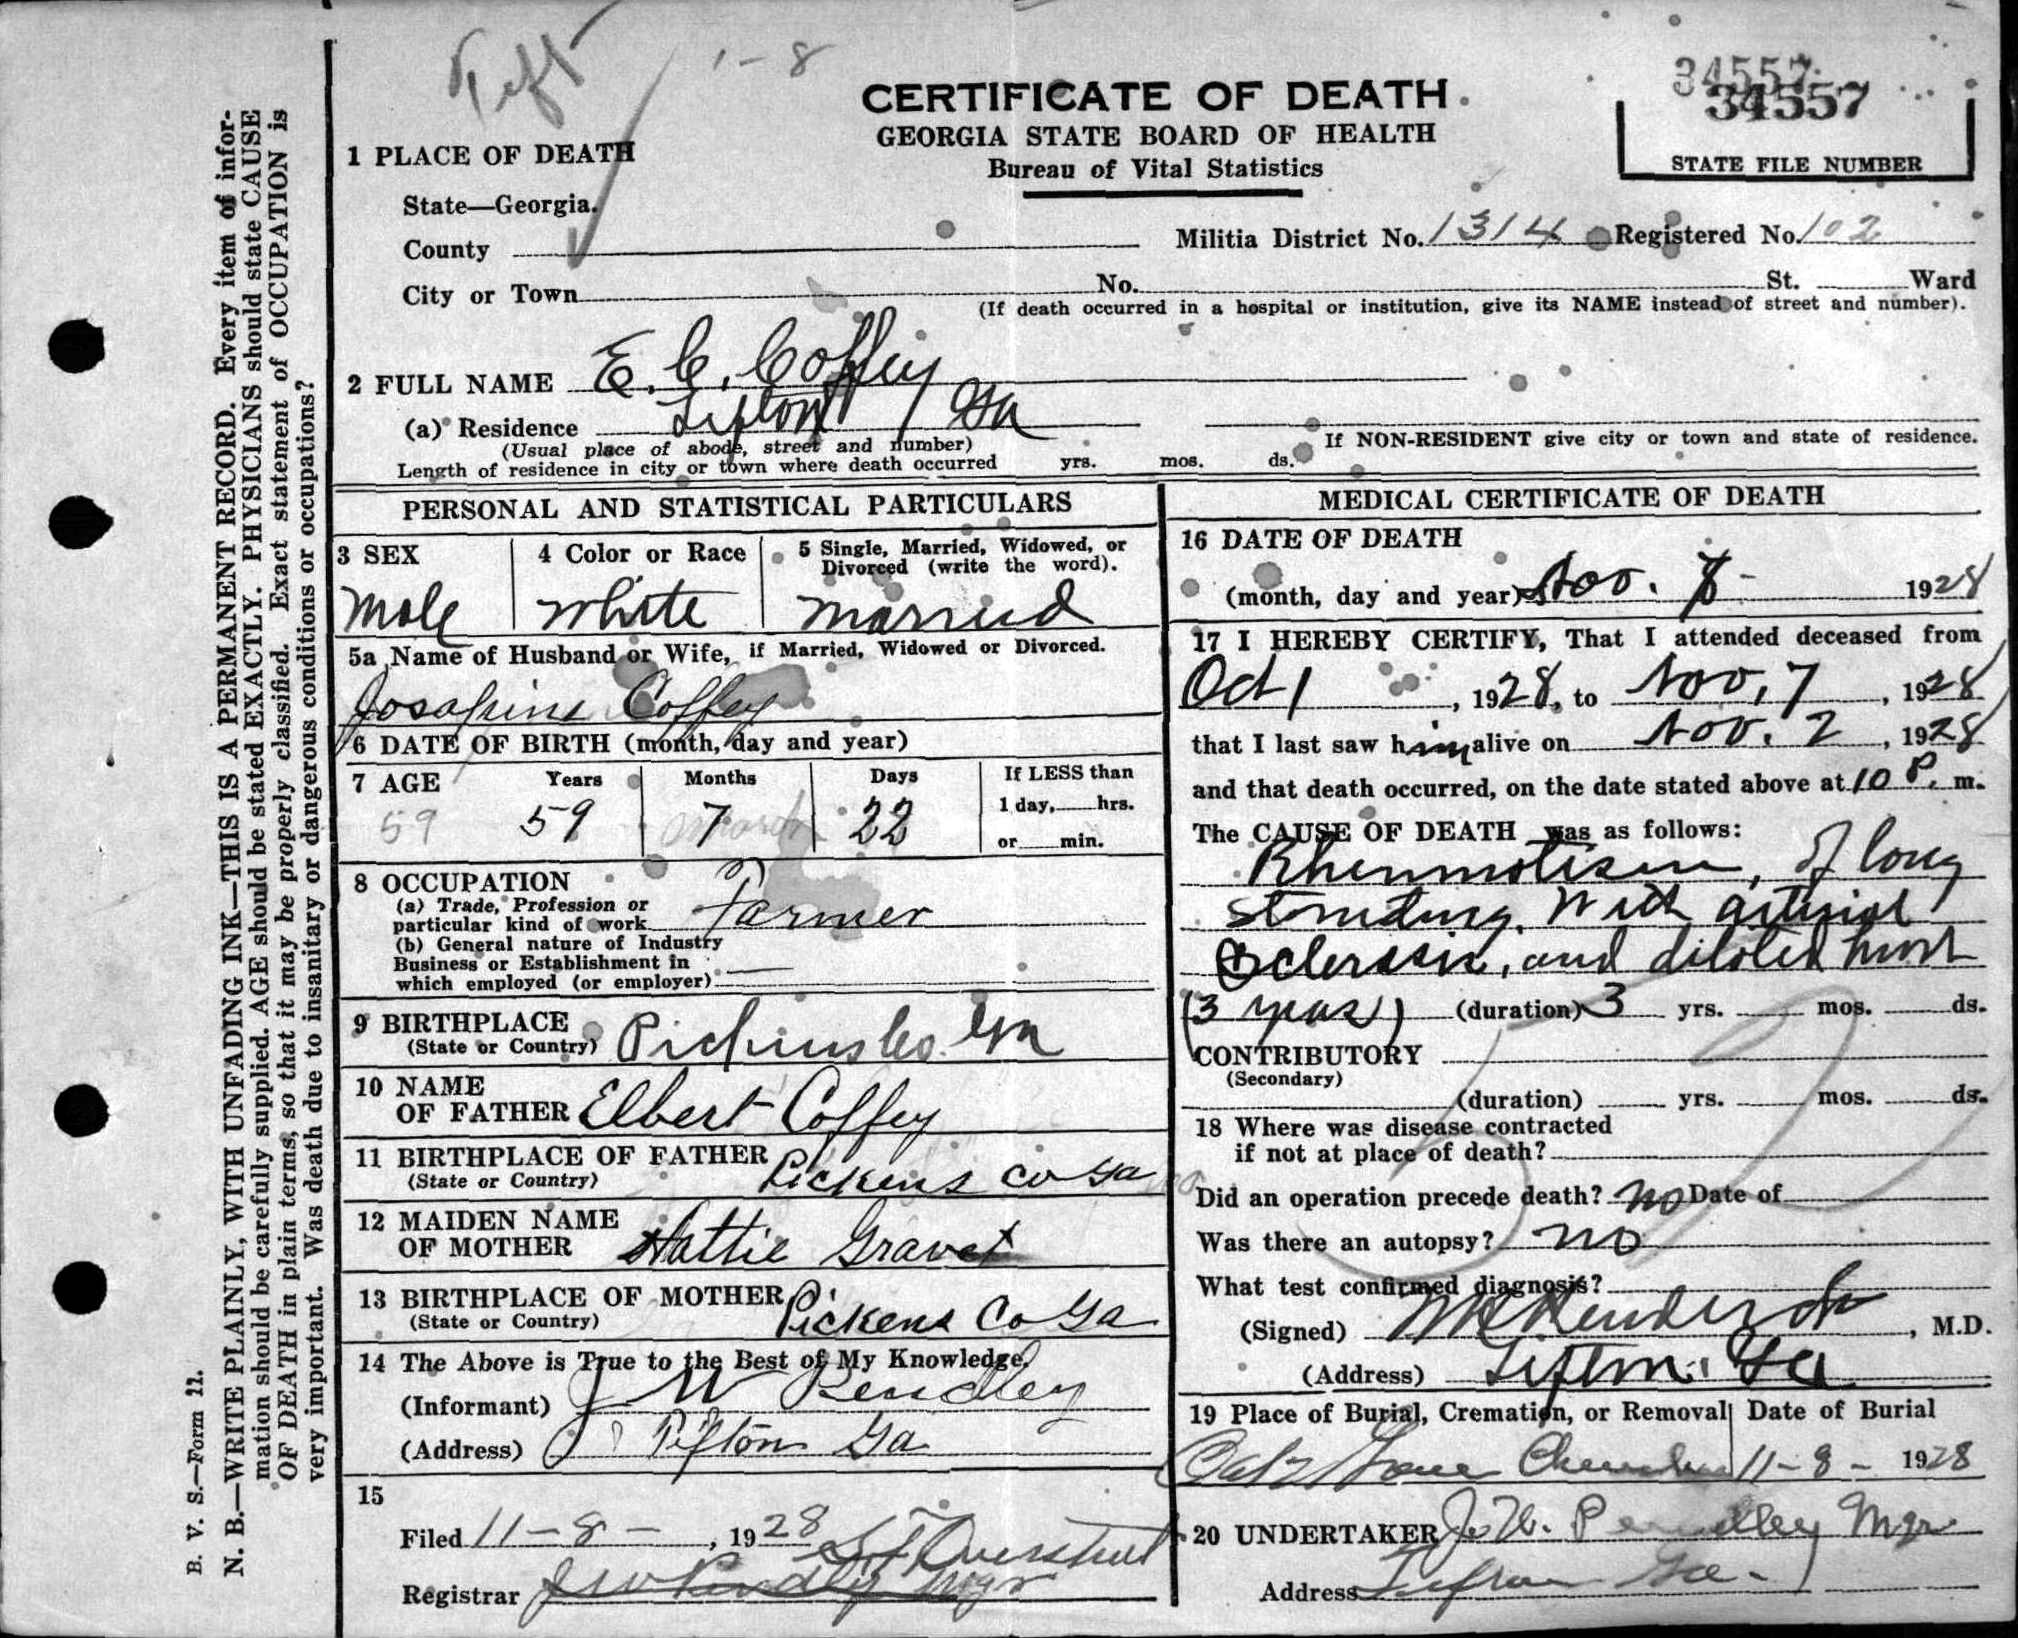 Tift
1-8
34557
34557
STATE FILE NUMBER
CERTIFICATE OF DEATH
GEORGIA STATE BOARD OF HEALTH
Bureau of Vital Statistics
1 PLACE OF DEATH
State—Georgia.
County
Militia District No. 1314 Registered No. 102
City or Town No. St. Ward
(If death occurred in a hospital or institution, give its NAME instead of street and number).
2 FULL NAME E. C. Coffey
(a) Residence Tifton Ga
(Usual place of abode, street and number)
If NON-RESIDENT give city or town and state of residence.
Length of residence in city or town where death occurred yrs. mos. ds.
PERSONAL AND STATISTICAL PARTICULARS
3 SEX
Male
4 Color or Race
White
5 Single, Married, Widowed, or
Divorced (write the word).
Married
5a Name of Husband or Wife, if Married, Widowed or Divorced.
Josaphine Coffey
6 DATE OF BIRTH (month, day and year)
7 AGE Years Months Days If LESS than
59 59 7 22 1 day, hrs.
or min.
8 OCCUPATION
(a) Trade, Profession or
particular kind of work Farmer
(b) General nature of Industry
Business or Establishment in
which employed (or employer)
9 BIRTHPLACE
(State or Country) Pickins Co. Ga
10 NAME
OF FATHER Elbert Coffey
11 BIRTHPLACE OF FATHER
(State or Country) Pickens Co Ga
12 MAIDEN NAME
OF MOTHER Hattie
13 BIRTHPLACE OF MOTHER
(State or Country) Pickens Co Ga
14 The Above is True to the Best of My Knowledge.
(Informant) J W Pendley
(Address) Tifton Ga
15
Filed 11-8- , 1928
Overstreet
Registrar J W Pendley Mgr
MEDICAL CERTIFICATE OF DEATH
16 DATE OF DEATH
(month, day and year) Nov. 7- 1928
17 I HEREBY CERTIFY, That I attended deceased from
Oct 1 , 1928, to Nov. 7 , 1928
that I last saw him alive on Nov. 2 , 1928
and that death occurred, on the date stated above at 10 P. m.
The CAUSE OF DEATH was as follows:
Rheumatism, of long
standing. With arterial
Sclerosis, and dilated heart
(3 years) (duration) 3 yrs. mos. ds.
CONTRIBUTORY
(Secondary)
(duration) yrs. mos. ds.
18 Where was disease contracted
if not at place of death?
Did an operation precede death? no Date of
Was there an autopsy? no
What test confirmed diagnosis?
(Signed) Hendricks , M.D.
(Address) Tifton. Ga
19 Place of Burial, Cremation, or Removal Date of Burial
Church 11-8- 1928
20 UNDERTAKER J. W. Pendley Mgr
Address Tifton Ga.
B. V. S.—Form 11.
N. B.—WRITE PLAINLY, WITH UNFADING INK—THIS IS A PERMANENT RECORD. Every item of infor-
mation should be carefully supplied. AGE should be stated EXACTLY. PHYSICIANS should state CAUSE
OF DEATH in plain terms, so that it may be properly classified. Exact statement of OCCUPATION is
very important. Was death due to insanitary or dangerous conditions or occupations?